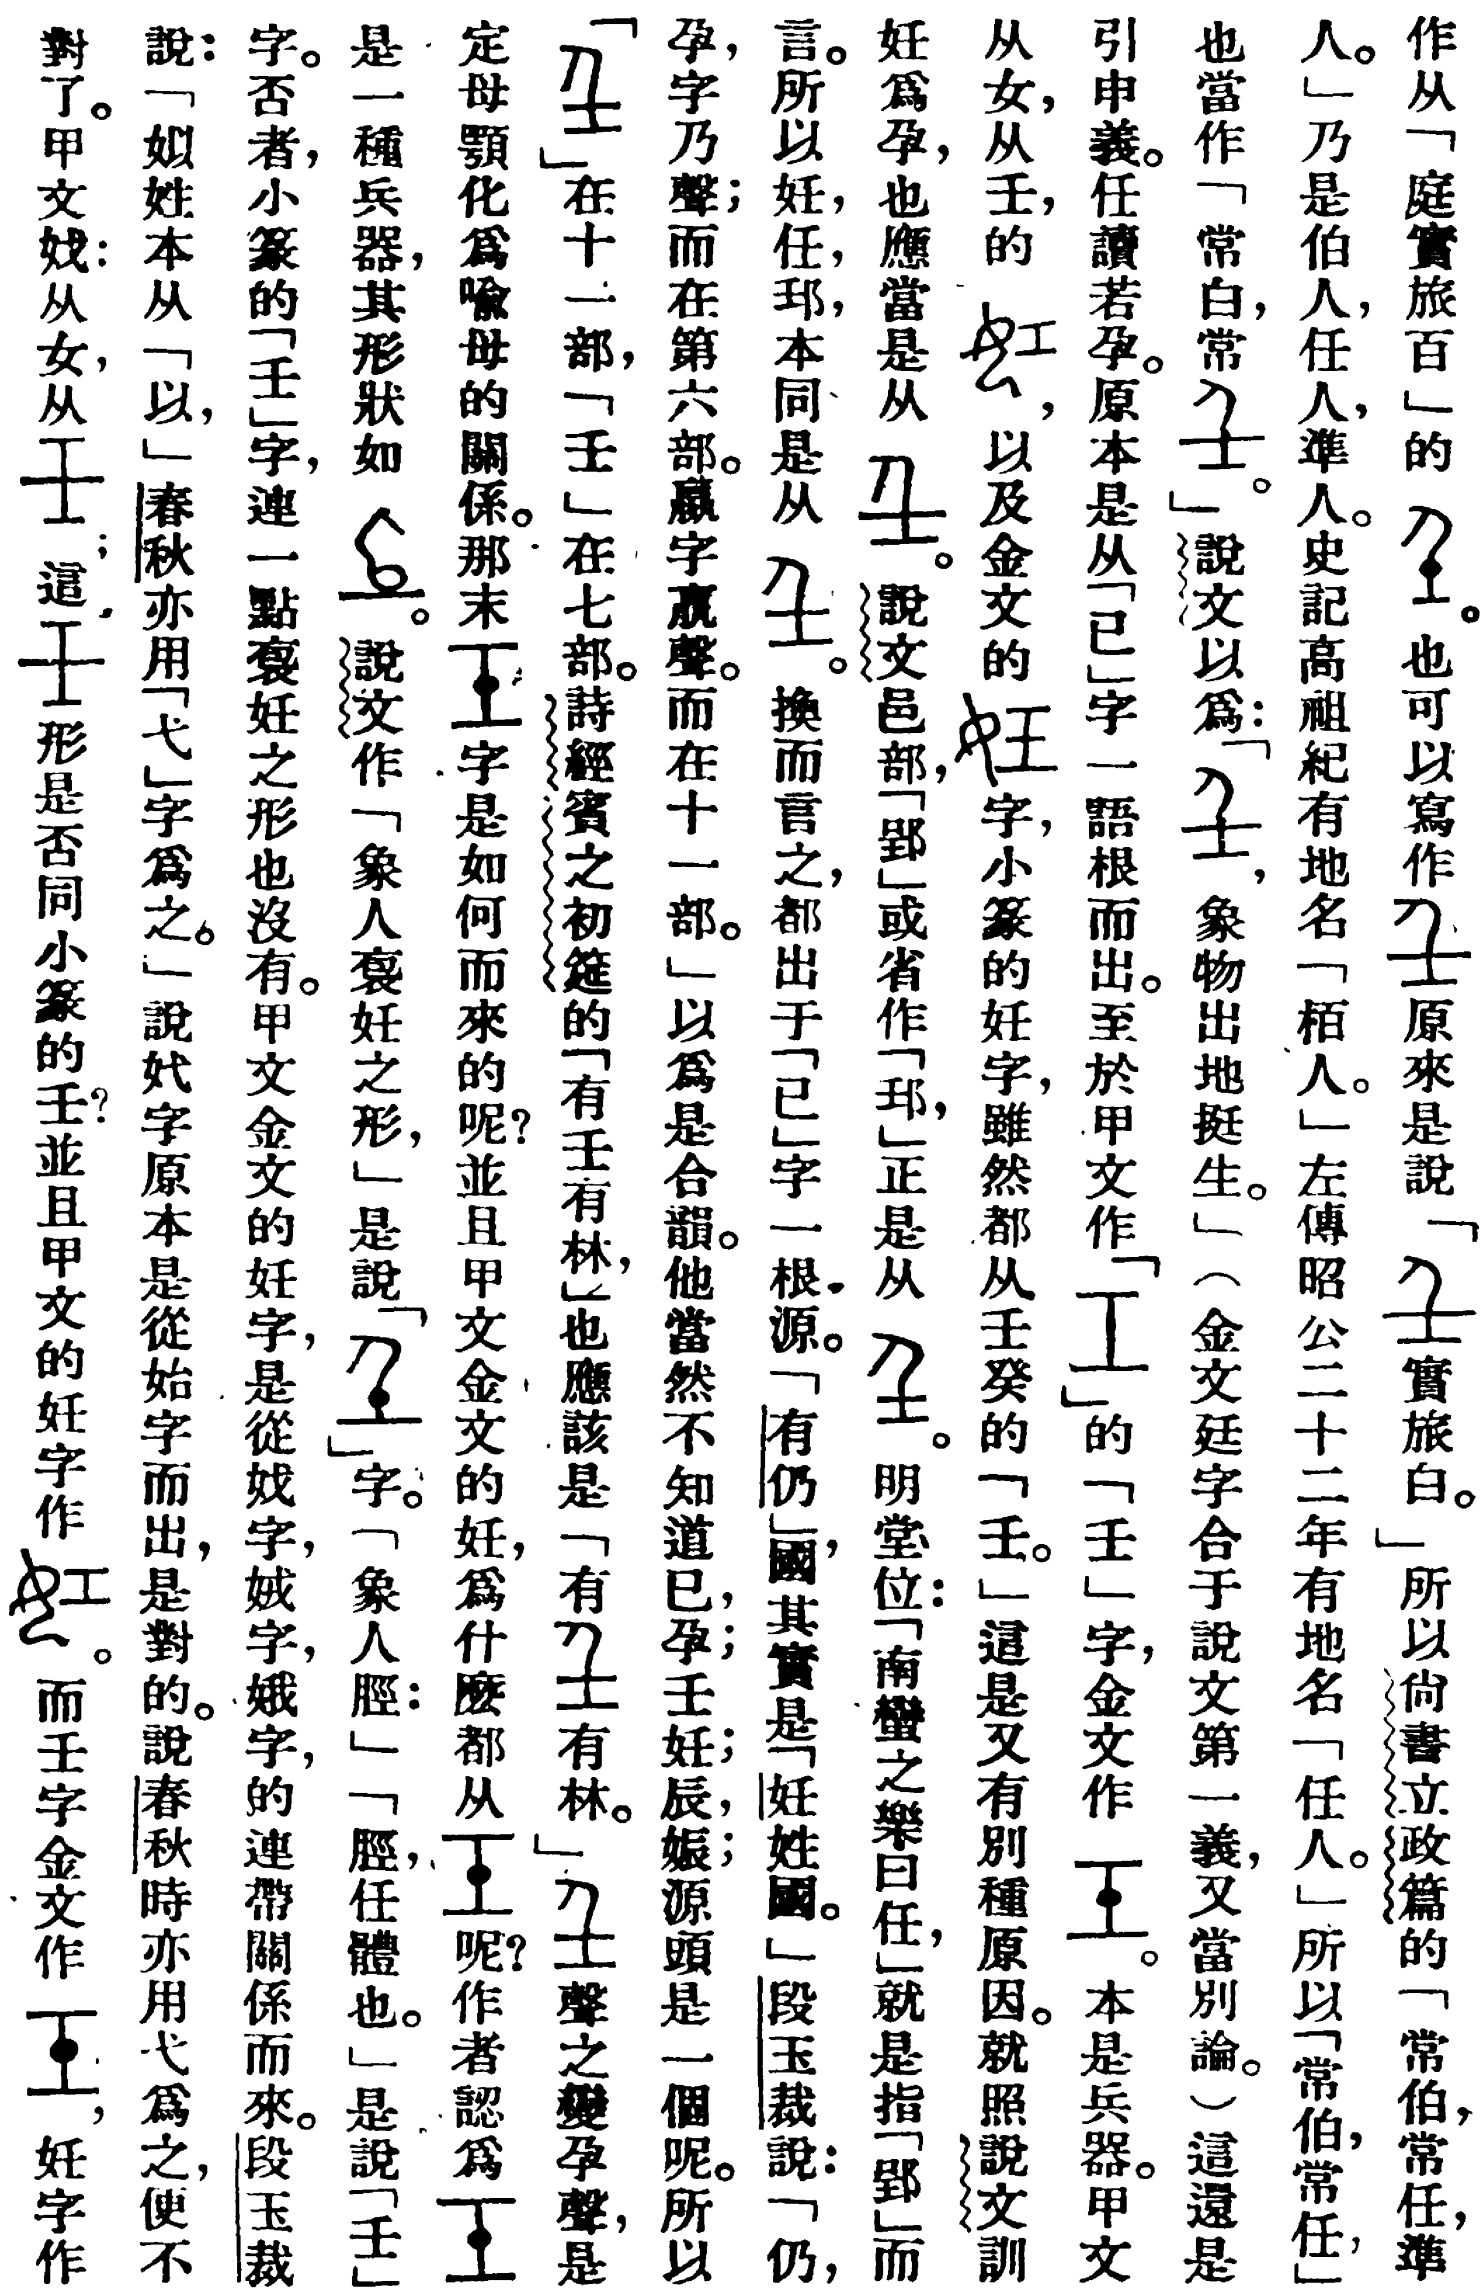 作从「庭實旅百」的。也可以寫作原來是說「實旅白。」所以尙書立政篇的「常伯，常任，準
人。」乃是伯人，任人，準人。史記高祖紀有地名「栢人。」左傳昭公二十二年有地名「任人。」所以「常伯，常任，」
也當作「常白，常。」說文以爲：「，象物出地挺生。」（金文廷字合于說文第一義，又當別論。）這還是
引申義。任讀若孕。原本是从「已」字一語根而出。至於甲文作「工」的「壬」字，金文作。本是兵器。甲文
从女，从壬，的，以及金文的字，小篆的妊字，雖然都从壬癸的「壬。」這是又有別種原因。就照說文訓
妊爲孕，也應當是从。說文邑部，「郢」或省作「邳，」正是从。明堂位：「南蠻之樂曰任，」就是指「郢」而
言。所以妊，任，邳，本同是从。換而言之，都出于「已」字一根源。「有仍」國其實是「妊姓國。」段玉裁說：「仍，
孕，字乃聲；而在第六部。贏字𣎆聲。而在十一部。」以爲是合韻。他當然不知道已，孕；壬妊；辰，娠；源頭是一個呢。所以
「」在十一部，「壬」在七部。詩經賓之初筵的「有壬有林，」也應該是「有有林。」聲之變孕聲，是
定母顎化爲喩母的關係。那末字是如何而來的呢？並且甲文金文的妊，爲什麽都从呢？作者認爲
是一種兵器，其形狀如。說文作「象人褢妊之形，」是說「」字。「象人脛：」「脛，任體也。」是說「壬」
字。否者，小篆的「壬」字，連一點褢妊之形也沒有。甲文金文的妊字，是從㚤字，娍字，娥字，的連帶關係而來。段玉裁
說：「姒姓本从「以，」春秋亦用「弋」字爲之。」說㚤字原本是從始字而出，是對的。說春秋時亦用弋爲之，便不
對了。甲文㚤：从女，从；這形是否同小篆的壬？並且甲文的妊字作。而壬字金文作，妊字作